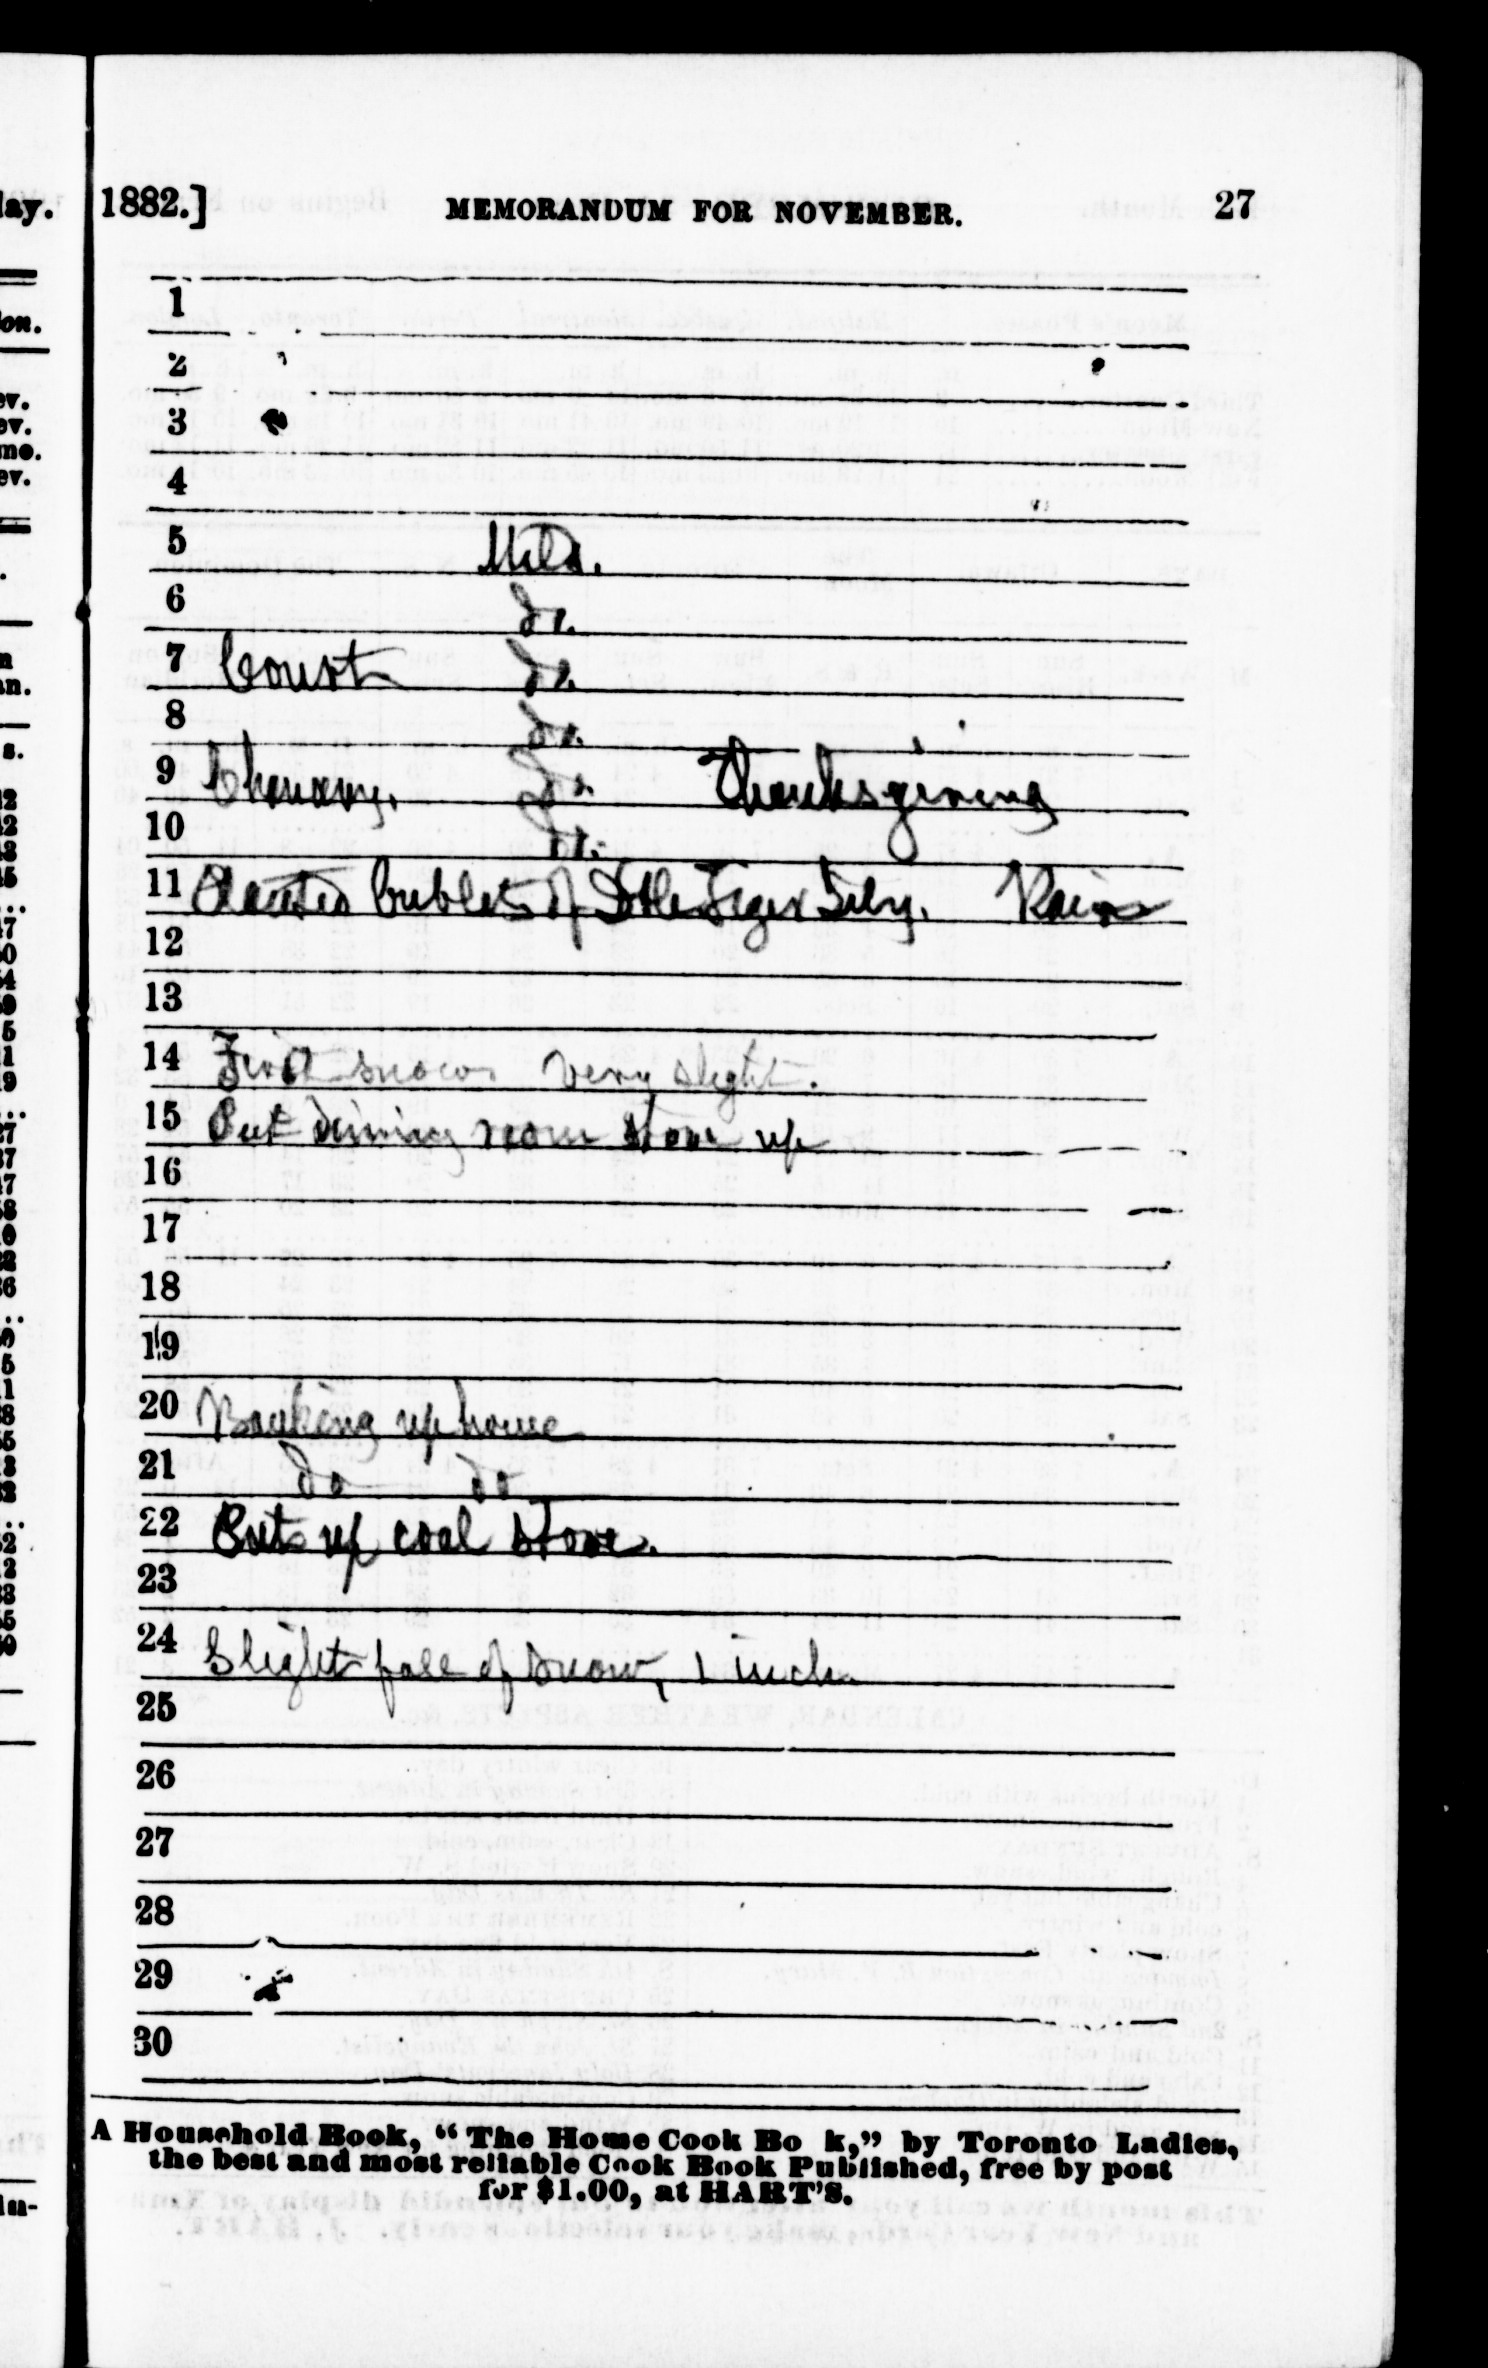 1882.] MEMORANDUM FOR NOVEMBER. 27
1
2
3
4
5 Mild.
6 do.
7 Court do.
8 do.
9 do. Thanksgiving
10 do.
11 Planted bublets of Tiger Lily. Rain
12
13
14 First snow. Very slight.
15 Put dining room stove up
16
17
18
19
20 Banking up house
21 do do
22 Puts up coal stove.
23
24 Slight fall of snow, 1 inch
25
26
27
28
29
30
A Household Book, “The Home Cook Bo k,” by Toronto Ladies,
the best and most reliable Cook Book Published, free by post
for $1.00, at HART'S.